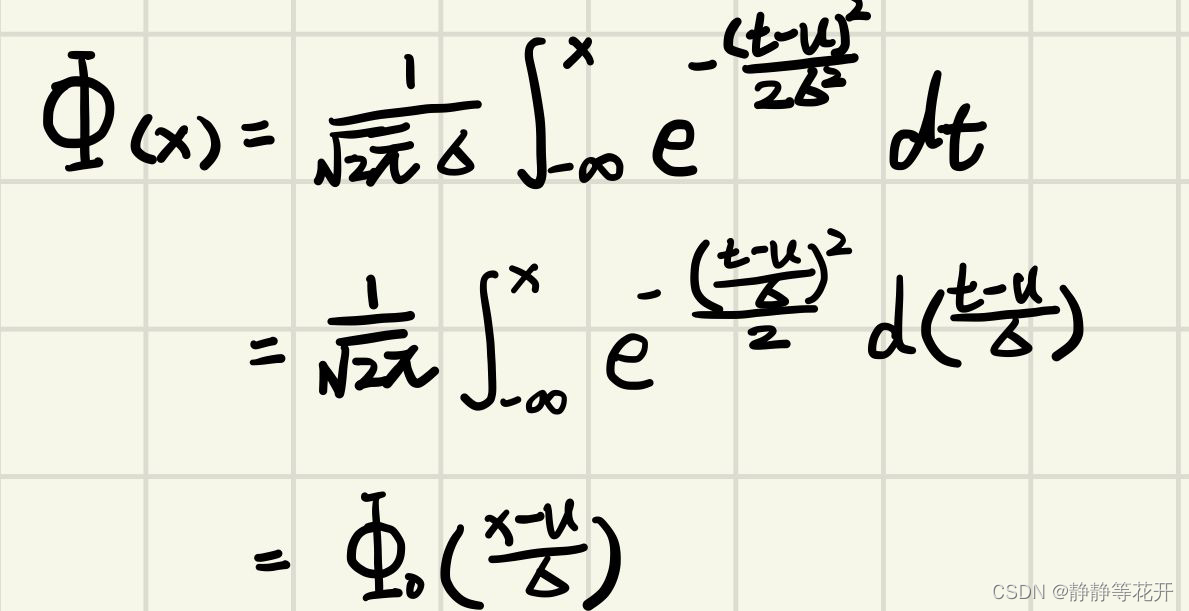 Φ(x) = \frac{1}{\sqrt{2π} σ} \int_{-∞}^{x} e^{-\frac{(t-u)^2}{2σ^2}} dt
= \frac{1}{\sqrt{2π}} \int_{-∞}^{x} e^{-\frac{(\frac{t-u}{σ})^2}{2}} d(\frac{t-u}{σ})
= Φ_0(\frac{x-u}{σ})
CSDN @静静等花开